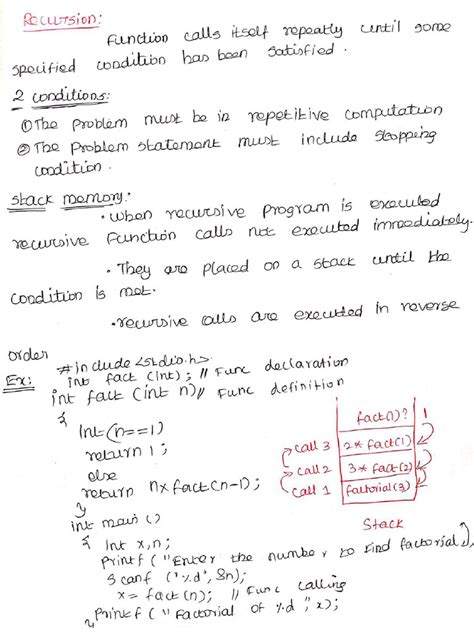 Recursion:
Function calls itself repeatly until some
specified condition has been satisfied.
2 conditions:
① The problem must be in repetitive computation
② The problem statement must include stopping
condition.
stack memory:
• when recursive program is executed
recursive function calls not executed immediately.
• They are placed on a stack until the
condition is met.
• recursive calls are executed in reverse
order
#include <stdio.h>
Ex: int fact (int); // Func declaration
int fact (int n) // Func definition
{
Int (n==1)
return 1;
else
return n x fact(n-1);
}
fact(1)? 1
call 3 2* fact(1)
call 2 3* fact(2)
call 1 factorial(3)
Stack
int main ()
{ Int x,n;
Printf ("Enter the number to find factorial");
scanf ("%d", &n);
x = fact (n); // Func calling
Printf ("Factorial of %d", x);
}